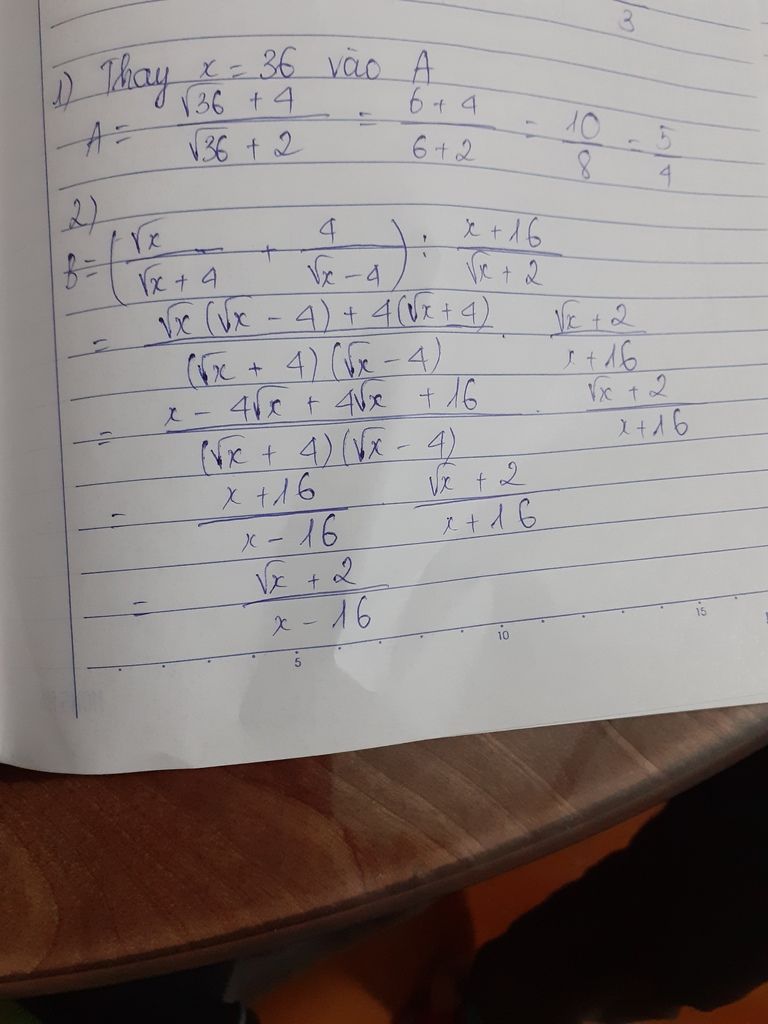 3
1) Thay x = 36 vào A
A = (√36 + 4)/(√36 + 2) = (6 + 4)/(6 + 2) = 10/8 = 5/4
2)
B = (√x/(√x + 4) + 4/(√x - 4)) : (x + 16)/(√x + 2)
= (√x (√x - 4) + 4(√x + 4))/((√x + 4)(√x - 4)) . (√x + 2)/(x + 16)
= (x - 4√x + 4√x + 16)/((√x + 4)(√x - 4)) . (√x + 2)/(x + 16)
= (x + 16)/(x - 16) (√x + 2)/(x + 16)
= (√x + 2)/(x - 16)
5 10 15